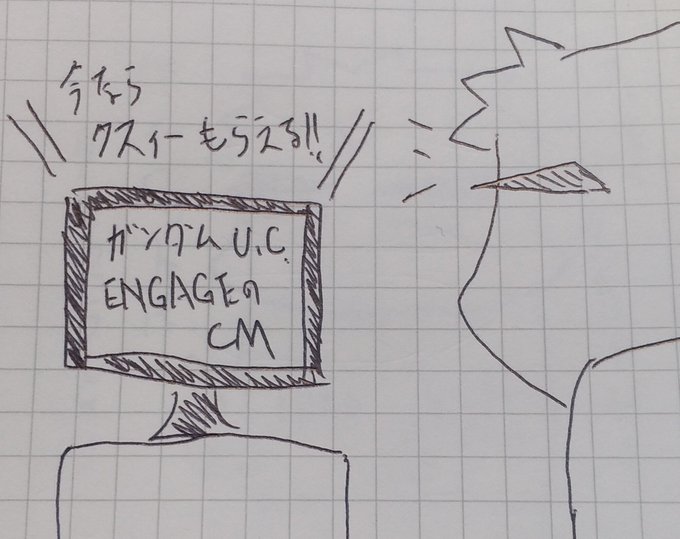 今なら
クスィーもらえる!!
ガンダムU.C.
ENGAGEの
CM